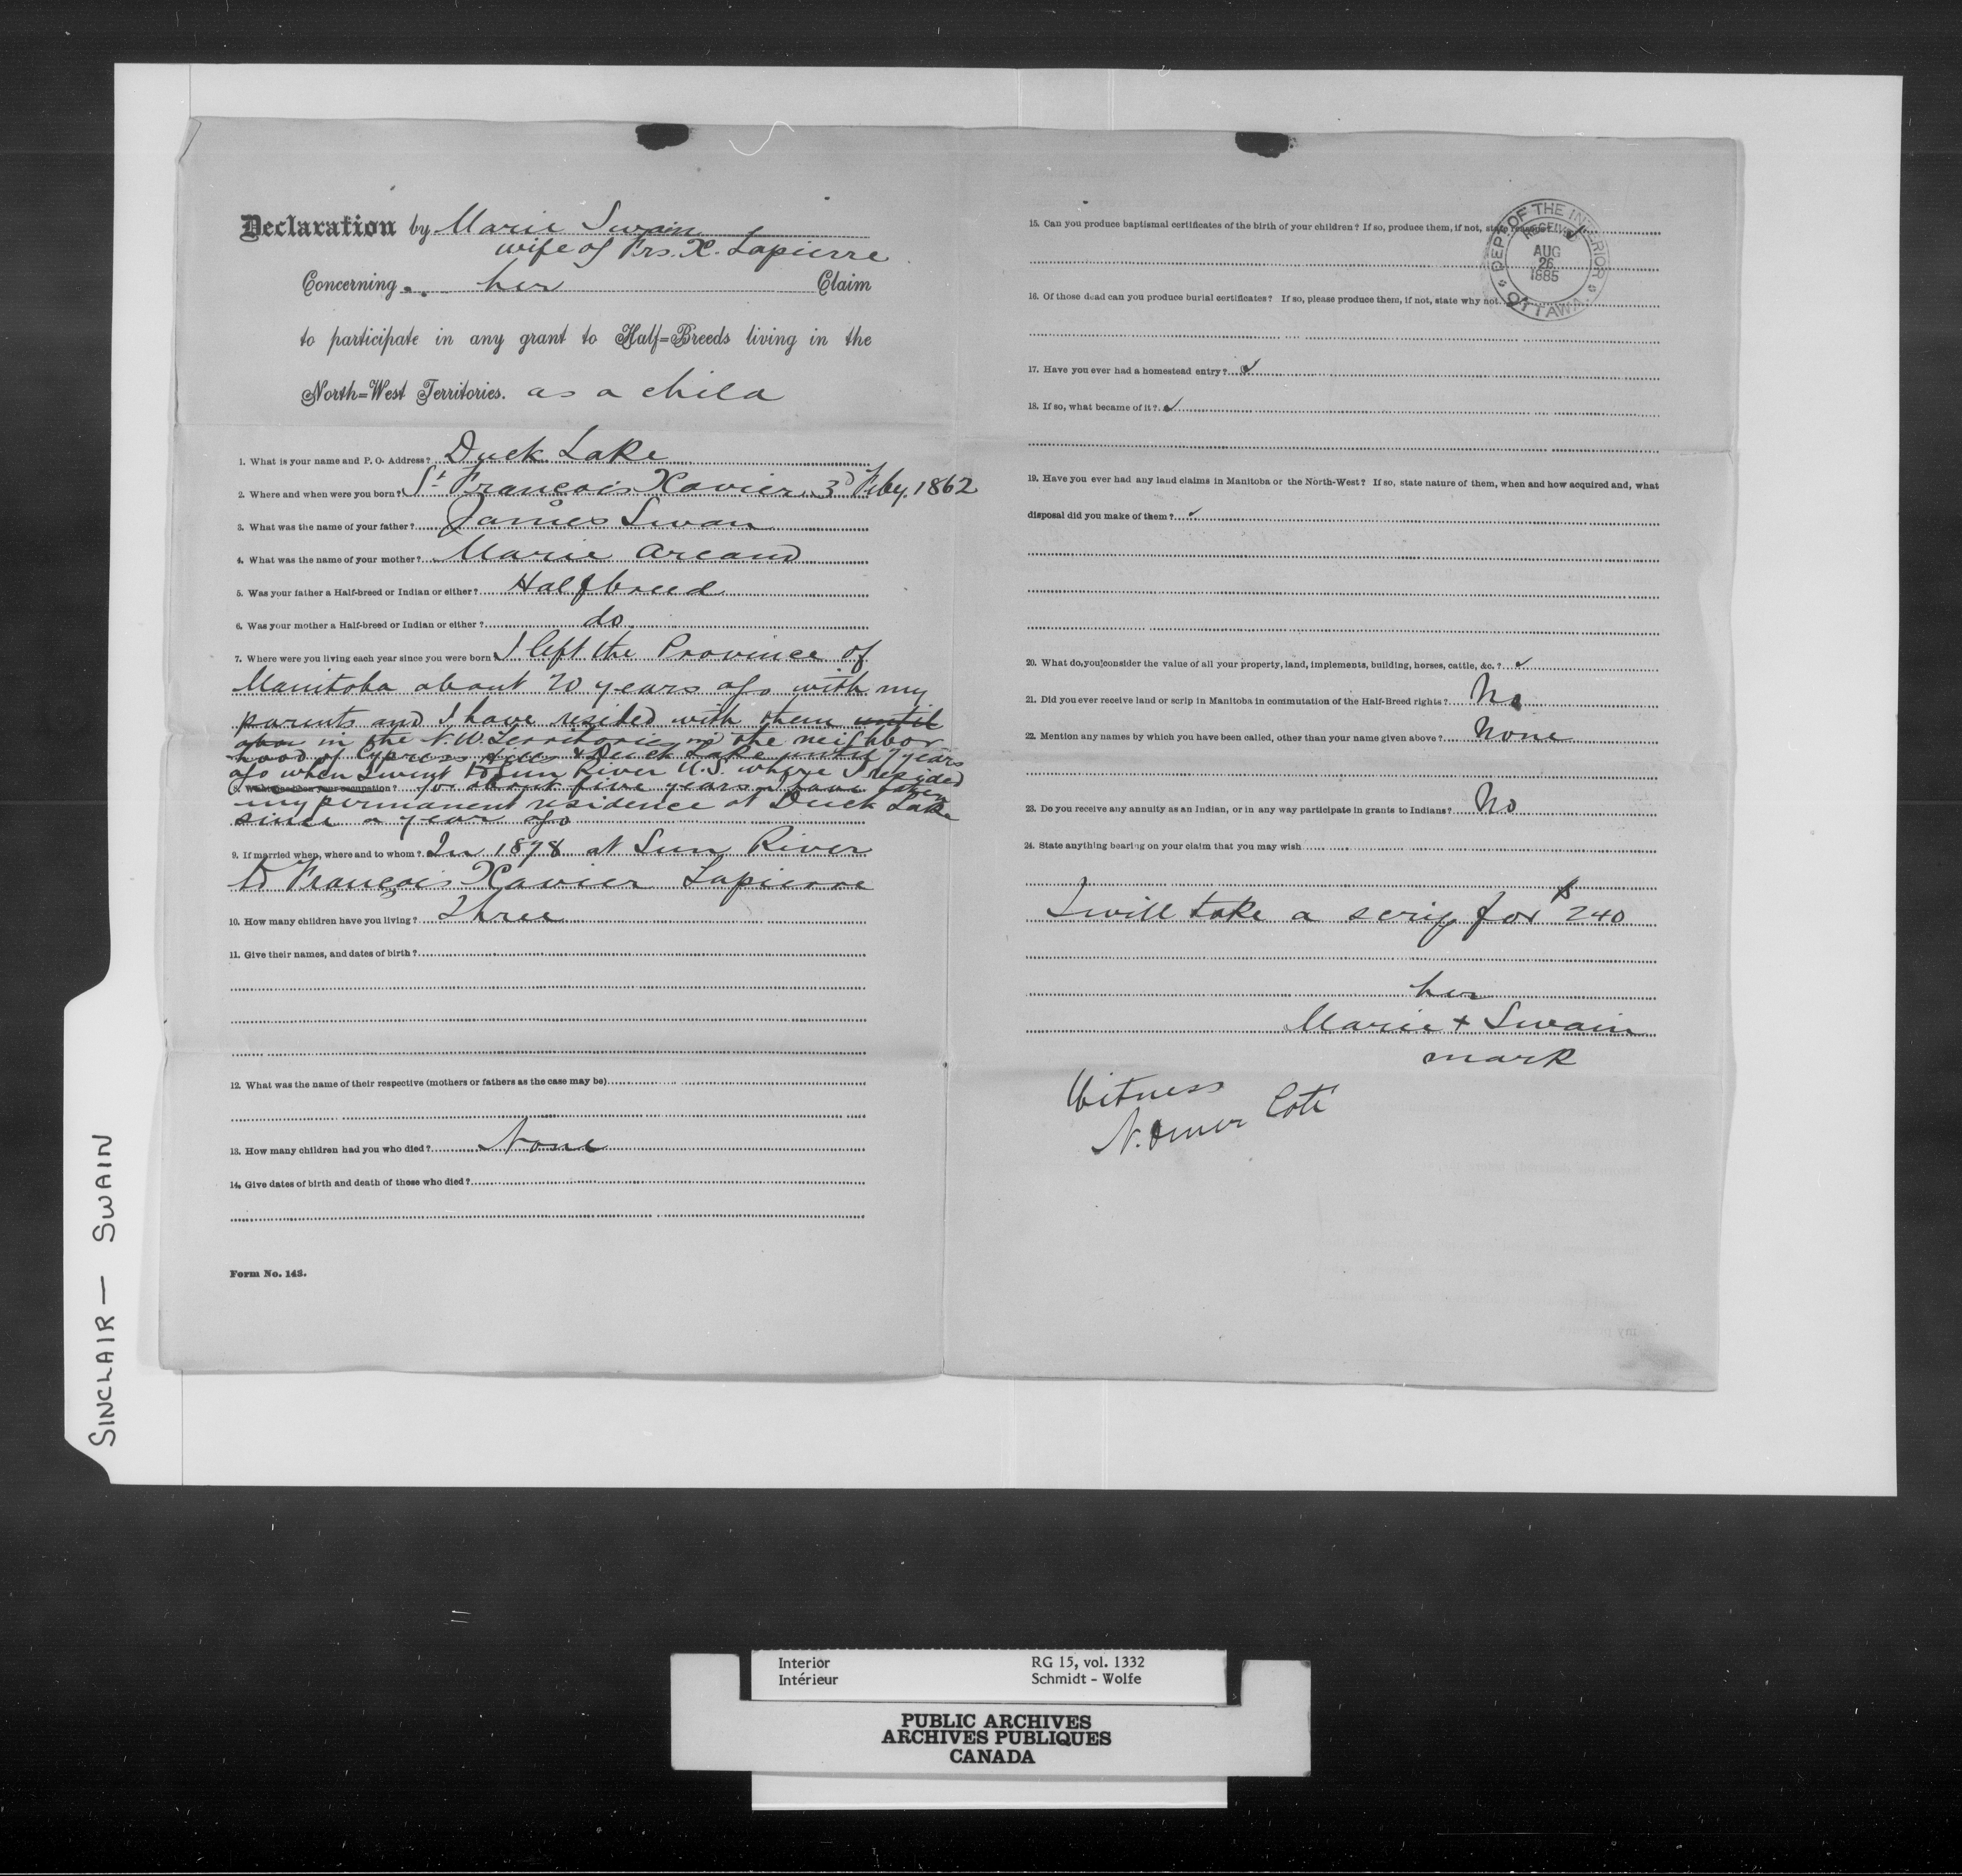 Declaration by Marie Swain
wife of Frs. X. Lapierre
Concerning her Claim
to participate in any grant to Half=Breeds living in the
North=West Territories. as a child
1. What is your name and P. O. Address? Duck Lake
2. Where and when were you born? St François Xavier 3d Feby. 1862
3. What was the name of your father? James Swan
4. What was the name of your mother? Marie Arcand
5. Was your father a Half-breed or Indian or either? Halfbreed
6. Was your mother a Half-breed or Indian or either? do
7. Where were you living each year since you were born I left the Province of
Manitoba about 20 years ago with my
parents and I have resided with them until
in the N.W. Territories in the neighbor
hood of Cypress Hills & Duck Lake until 7 years
ago when I went to Sun River U.S. where I resided
8. What has been your occupation? for about five years I have taken
my permanent residence at Duck Lake
since a year ago
9. If married when, where and to whom? In 1878 at Sun River
to François Xavier Lapierre
10. How many children have you living? Three
11. Give their names, and dates of birth?
12. What was the name of their respective (mothers or fathers as the case may be)
13. How many children had you who died? None
14. Give dates of birth and death of those who died?
Form No. 143.
15. Can you produce baptismal certificates of the birth of your children? If so, produce them, if not, state reasons
DEPT. OF THE INTERIOR
RECEIVED
AUG
26
1885
OTTAWA
16. Of those dead can you produce burial certificates? If so, please produce them, if not, state why not.
17. Have you ever had a homestead entry?
18. If so, what became of it?
19. Have you ever had any land claims in Manitoba or the North-West? If so, state nature of them, when and how acquired and, what
disposal did you make of them?
20. What do you consider the value of all your property, land, implements, building, horses, cattle, &c.?
21. Did you ever receive land or scrip in Manitoba in commutation of the Half-Breed rights? No
22. Mention any names by which you have been called, other than your name given above? None
23. Do you receive any annuity as an Indian, or in any way participate in grants to Indians? No
24. State anything bearing on your claim that you may wish
I will take a scrip for $240
her
Marie + Swain
mark
Witness
N. Omer Coté
SINCLAIR — SWAIN
Interior RG 15, vol. 1332
Intérieur Schmidt - Wolfe
PUBLIC ARCHIVES
ARCHIVES PUBLIQUES
CANADA